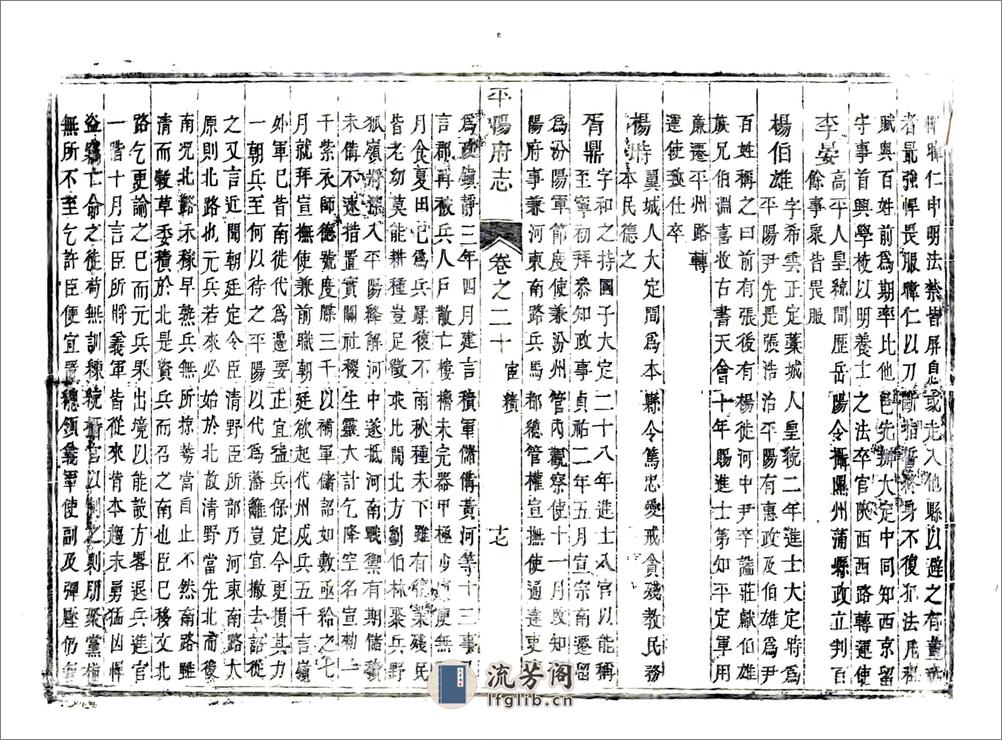 聯仁申明法禁皆屏息或走入他縣以避之有董
者最強悍畏服聯仁以刀斷指誓終身不復犯法凡
賦與百姓前爲期率比他邑先辦大定中同知西京留
守事首興學校以明養士之法卒官陝西西路轉運使
李晏 高平人皇統間歷岳陽令攝隰州蒲縣政立判百
餘事衆皆畏服
楊伯雄 字希雲正定藁城人皇統二年進士大定時爲
平陽尹先是張浩治平陽有惠政及伯雄爲尹
百姓稱之曰前有張後有楊徙河中尹卒諡莊獻伯雄
族兄伯淵喜收古書天會十年賜進士第知平定軍用
廉遷平州路轉
運使致仕卒
楊時 翼城人大定間爲本縣令篤忠愛戒貪殘教民務
本民德之
胥鼎 字和之持國子大定二十八年進士入官以能稱
至寧初拜參知政事貞祐二年五月宣宗南遷
爲汾陽軍節度使兼汾州管內觀察使十一月改知平
陽府事兼河東南路兵馬都總管權宣撫使過達吏
平陽府志 卷之二十 宦績
爲 鎮靜三年四月建言積軍儲備黃河等十三事
言郡再被兵人戶散亡樓櫓未完器甲極少 無
月食夏田已爲兵蹂復不雨秋種未下雖有 殘民
皆老幼莫能耕種豈足徵求比聞北方劉伯林聚兵野
狐嶺將深入平陽絳解河中遂抵河南戰禦有期儲積
未備不速措置實關社稷生靈大計乞降空名宣勑一
千紫衣師德號度牒三千以補軍儲詔如數亟給之七
月就拜宣撫使兼前職朝廷欲起代州戍兵五千言嶺
外軍已皆南徙代爲邊要正宜益兵保定令更損其力
一朝兵至何以待之平陽以代爲藩籬豈宜撤去詔從
之又言近聞朝廷定令臣清野臣所部乃河東南路太
原則北路也元兵若來必始於北故清野當先北而後
南况北路禾稼早熟兵無所掠勢當自止不然南路雖
清而穀草委積於北是資兵而召之南也臣已移文北
路乞更諭之已而元兵果出境以能設方畧退兵進官
一階十月言臣所將義軍皆從來背本趨末勇猛凶悍
盜竊亡命之徒苟無訓練統攝官以制之則朋聚黨植
無所不至乞許臣便宜置總領義軍使副及彈壓仍
流芳阁
lfglib.cn